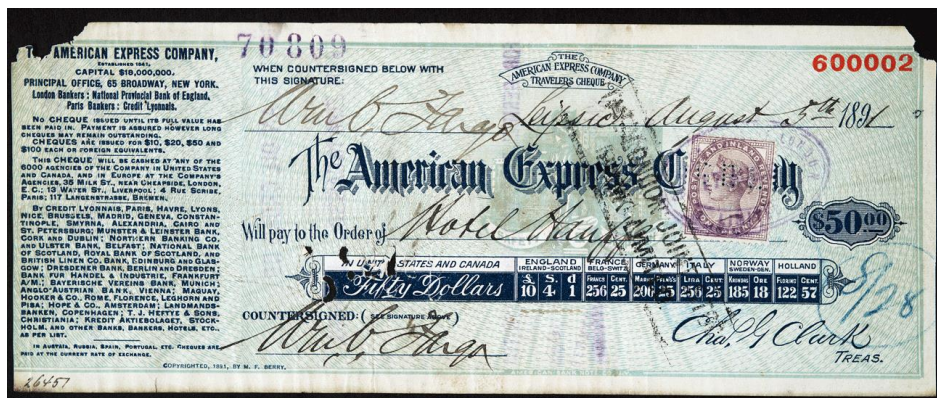 70809
THE AMERICAN EXPRESS COMPANY,
ESTABLISHED 1841,
CAPITAL $18,000,000.
PRINCIPAL OFFICE, 65 BROADWAY, NEW YORK.
London Bankers: National Provincial Bank of England,
Paris Bankers: Credit Lyonnais.
NO CHEQUE ISSUED UNTIL ITS FULL VALUE HAS
BEEN PAID IN. PAYMENT IS ASSURED HOWEVER LONG
CHEQUES MAY REMAIN OUTSTANDING.
CHEQUES ARE ISSUED FOR $10, $20, $50 AND
$100 EACH OR FOREIGN EQUIVALENTS.
THIS CHEQUE WILL BE CASHED AT ANY OF THE
6000 AGENCIES OF THE COMPANY IN UNITED STATES
AND CANADA, AND IN EUROPE AT THE COMPANY'S
AGENCIES, 35 MILK ST., NEAR CHEAPSIDE, LONDON,
E.C.; 13 WATER ST., LIVERPOOL; 4 RUE SCRIBE,
PARIS; 117 LANGENSTRASSE, BREMEN.
BY CREDIT LYONNAIS, PARIS, HAVRE, LYONS,
NICE, BRUSSELS, MADRID, GENEVA, CONSTAN-
TINOPLE, SMYRNA, ALEXANDRIA, CAIRO AND
ST. PETERSBURG; MUNSTER & LEINSTER BANK,
CORK AND DUBLIN; NORTHERN BANKING CO.
AND ULSTER BANK, BELFAST; NATIONAL BANK
OF SCOTLAND, ROYAL BANK OF SCOTLAND, AND
BRITISH LINEN CO. BANK, EDINBURG AND GLAS-
GOW; DRESDENER BANK, BERLIN AND DRESDEN;
BANK FUR HANDEL & INDUSTRIE, FRANKFURT
A/M.; BAYERISCHE VEREINS BANK, MUNICH;
ANGLO-AUSTRIAN BANK, VIENNA; MAQUAY,
HOOKER & CO., ROME, FLORENCE, LEGHORN AND
PISA; HOPE & CO., AMSTERDAM; LANDMANDS-
BANKEN, COPENHAGEN; T. J. HEFTYE & SONS,
CHRISTIANIA; KREDIT AKTIEBOLAGET, STOCK-
HOLM, AND OTHER BANKS, BANKERS, HOTELS, ETC.,
AS PER LIST.
IN AUSTRIA, RUSSIA, SPAIN, PORTUGAL, ETC. CHEQUES ARE
PAID AT THE CURRENT RATE OF EXCHANGE.
26457
WHEN COUNTERSIGNED BELOW WITH
THIS SIGNATURE:
THE
AMERICAN EXPRESS COMPANY
TRAVELERS CHEQUE.
600002
Wm C. Fargo
August 5th 1891
The American Express Company
POSTAGE AND INLAND REVENUE
$50.00
Will pay to the Order of Hotel
IN UNITED STATES AND CANADA
Fifty Dollars
ENGLAND IRELAND-SCOTLAND
£ S. d.
10 4 1
FRANCE BELG-SWITZ
Francs Cent
256 25
GERMANY
206 25
ITALY
Lira Cent
256 25
NORWAY SWEDEN-DEN.
Kronor Ore
185 18
HOLLAND
Florins Cent
122 57
8/28
COUNTERSIGNED: (SEE SIGNATURE ABOVE)
Wm C. Fargo
Chas. G Clark
TREAS.
COPYRIGHTED, 1891, BY M. F. BERRY.
AMERICAN BANK NOTE CO.